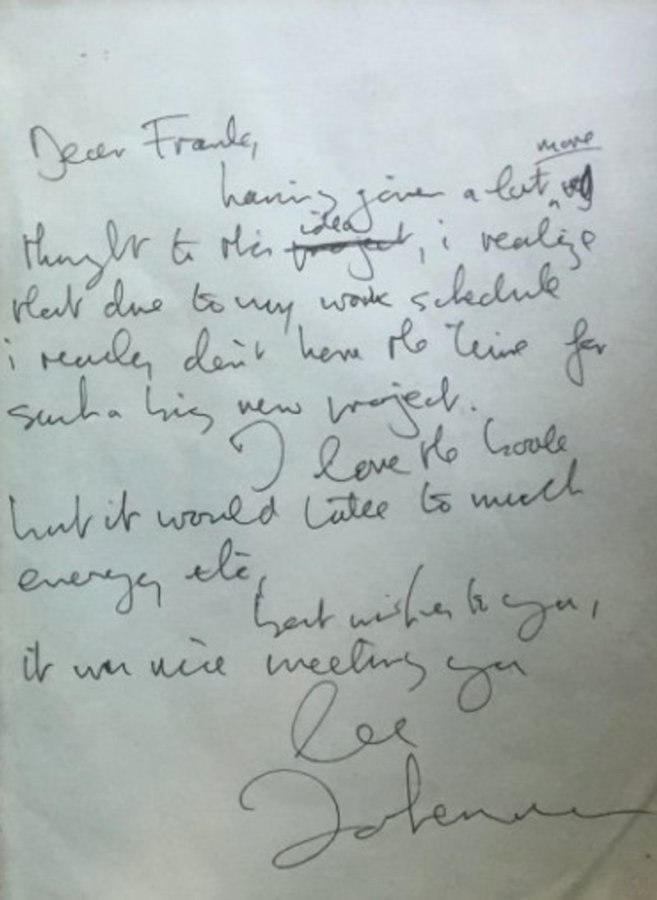 Dear Frank,
having given a lot more
thought to this idea project, i realize
that due to my work schedule
i really don't have the time for
such a big new project.
I love the book
but it would take to much
energy etc,
best wishes to you,
it was nice meeting you